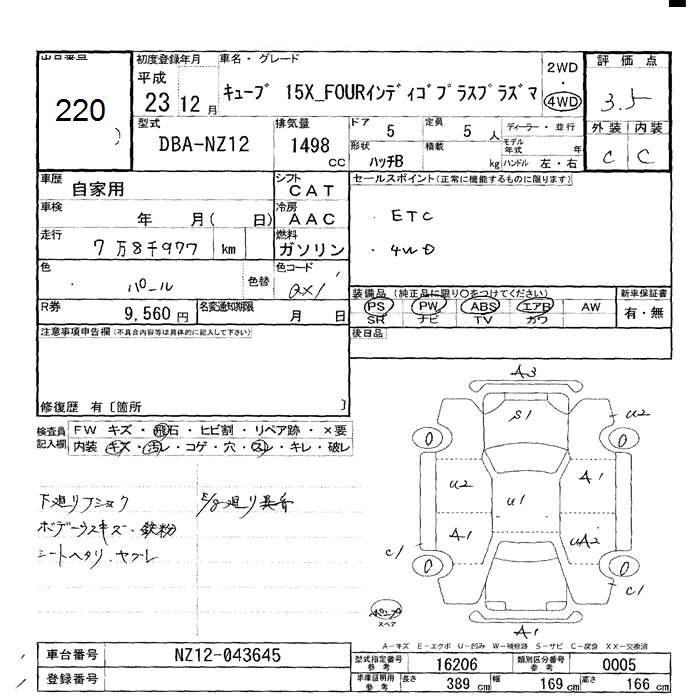 出品番号
220
初度登録年月
平成
23 12 月
車名・グレード
キューブ 15X_FOURインディゴプラスプラズマ
2WD
・
4WD
評価点
3.5
外装 内装
C C
型式
DBA-NZ12
排気量
1498
CC
ドア
5
定員
5 人
ディーラー・並行
形状
ハッチB
積載
kg
モデル
年式
年
ハンドル 左・右
車歴
自家用
シフト
CAT
車検
年 月( 日)
冷房
AAC
走行
7万8千977 km
燃料
ガソリン
セールスポイント(正常に機能するものに限ります)
・ETC
・4WD
色
パール
色替
色コード
QX1
装備品 (純正品に限り○をつけてください)
PS PW ABS エアB AW
SR ナビ TV カワ
新車保証書
有・無
R券
9,560 円
名変通知期限
月 日
後日品
注意事項申告欄(不具合内容等は具体的に記入して下さい)
修復歴 有〔箇所 〕
検査員
記入欄
FW キズ・飛石・ヒビ割・リペア跡・×要
内装 キズ・汚レ・コゲ・穴・スレ・キレ・破レ
下廻りフショク
E/g廻り異音
ボデーウスキズ・鉄粉
シートヘタリ・ヤブレ
A3
S1
U2
0
0
U2
U1
A1
A1
UA2
C1
0
0
C1
パンク
スペア
A1
A-キズ E-エクボ U-凹み W-補修跡 S-サビ C-腐食 XX-交換済
車台番号
NZ12-043645
登録番号
型式指定番号
参考
16206
類別区分番号
参考
0005
車庫証明用
参考
長さ 389 cm
幅 169 cm
高さ 166 cm